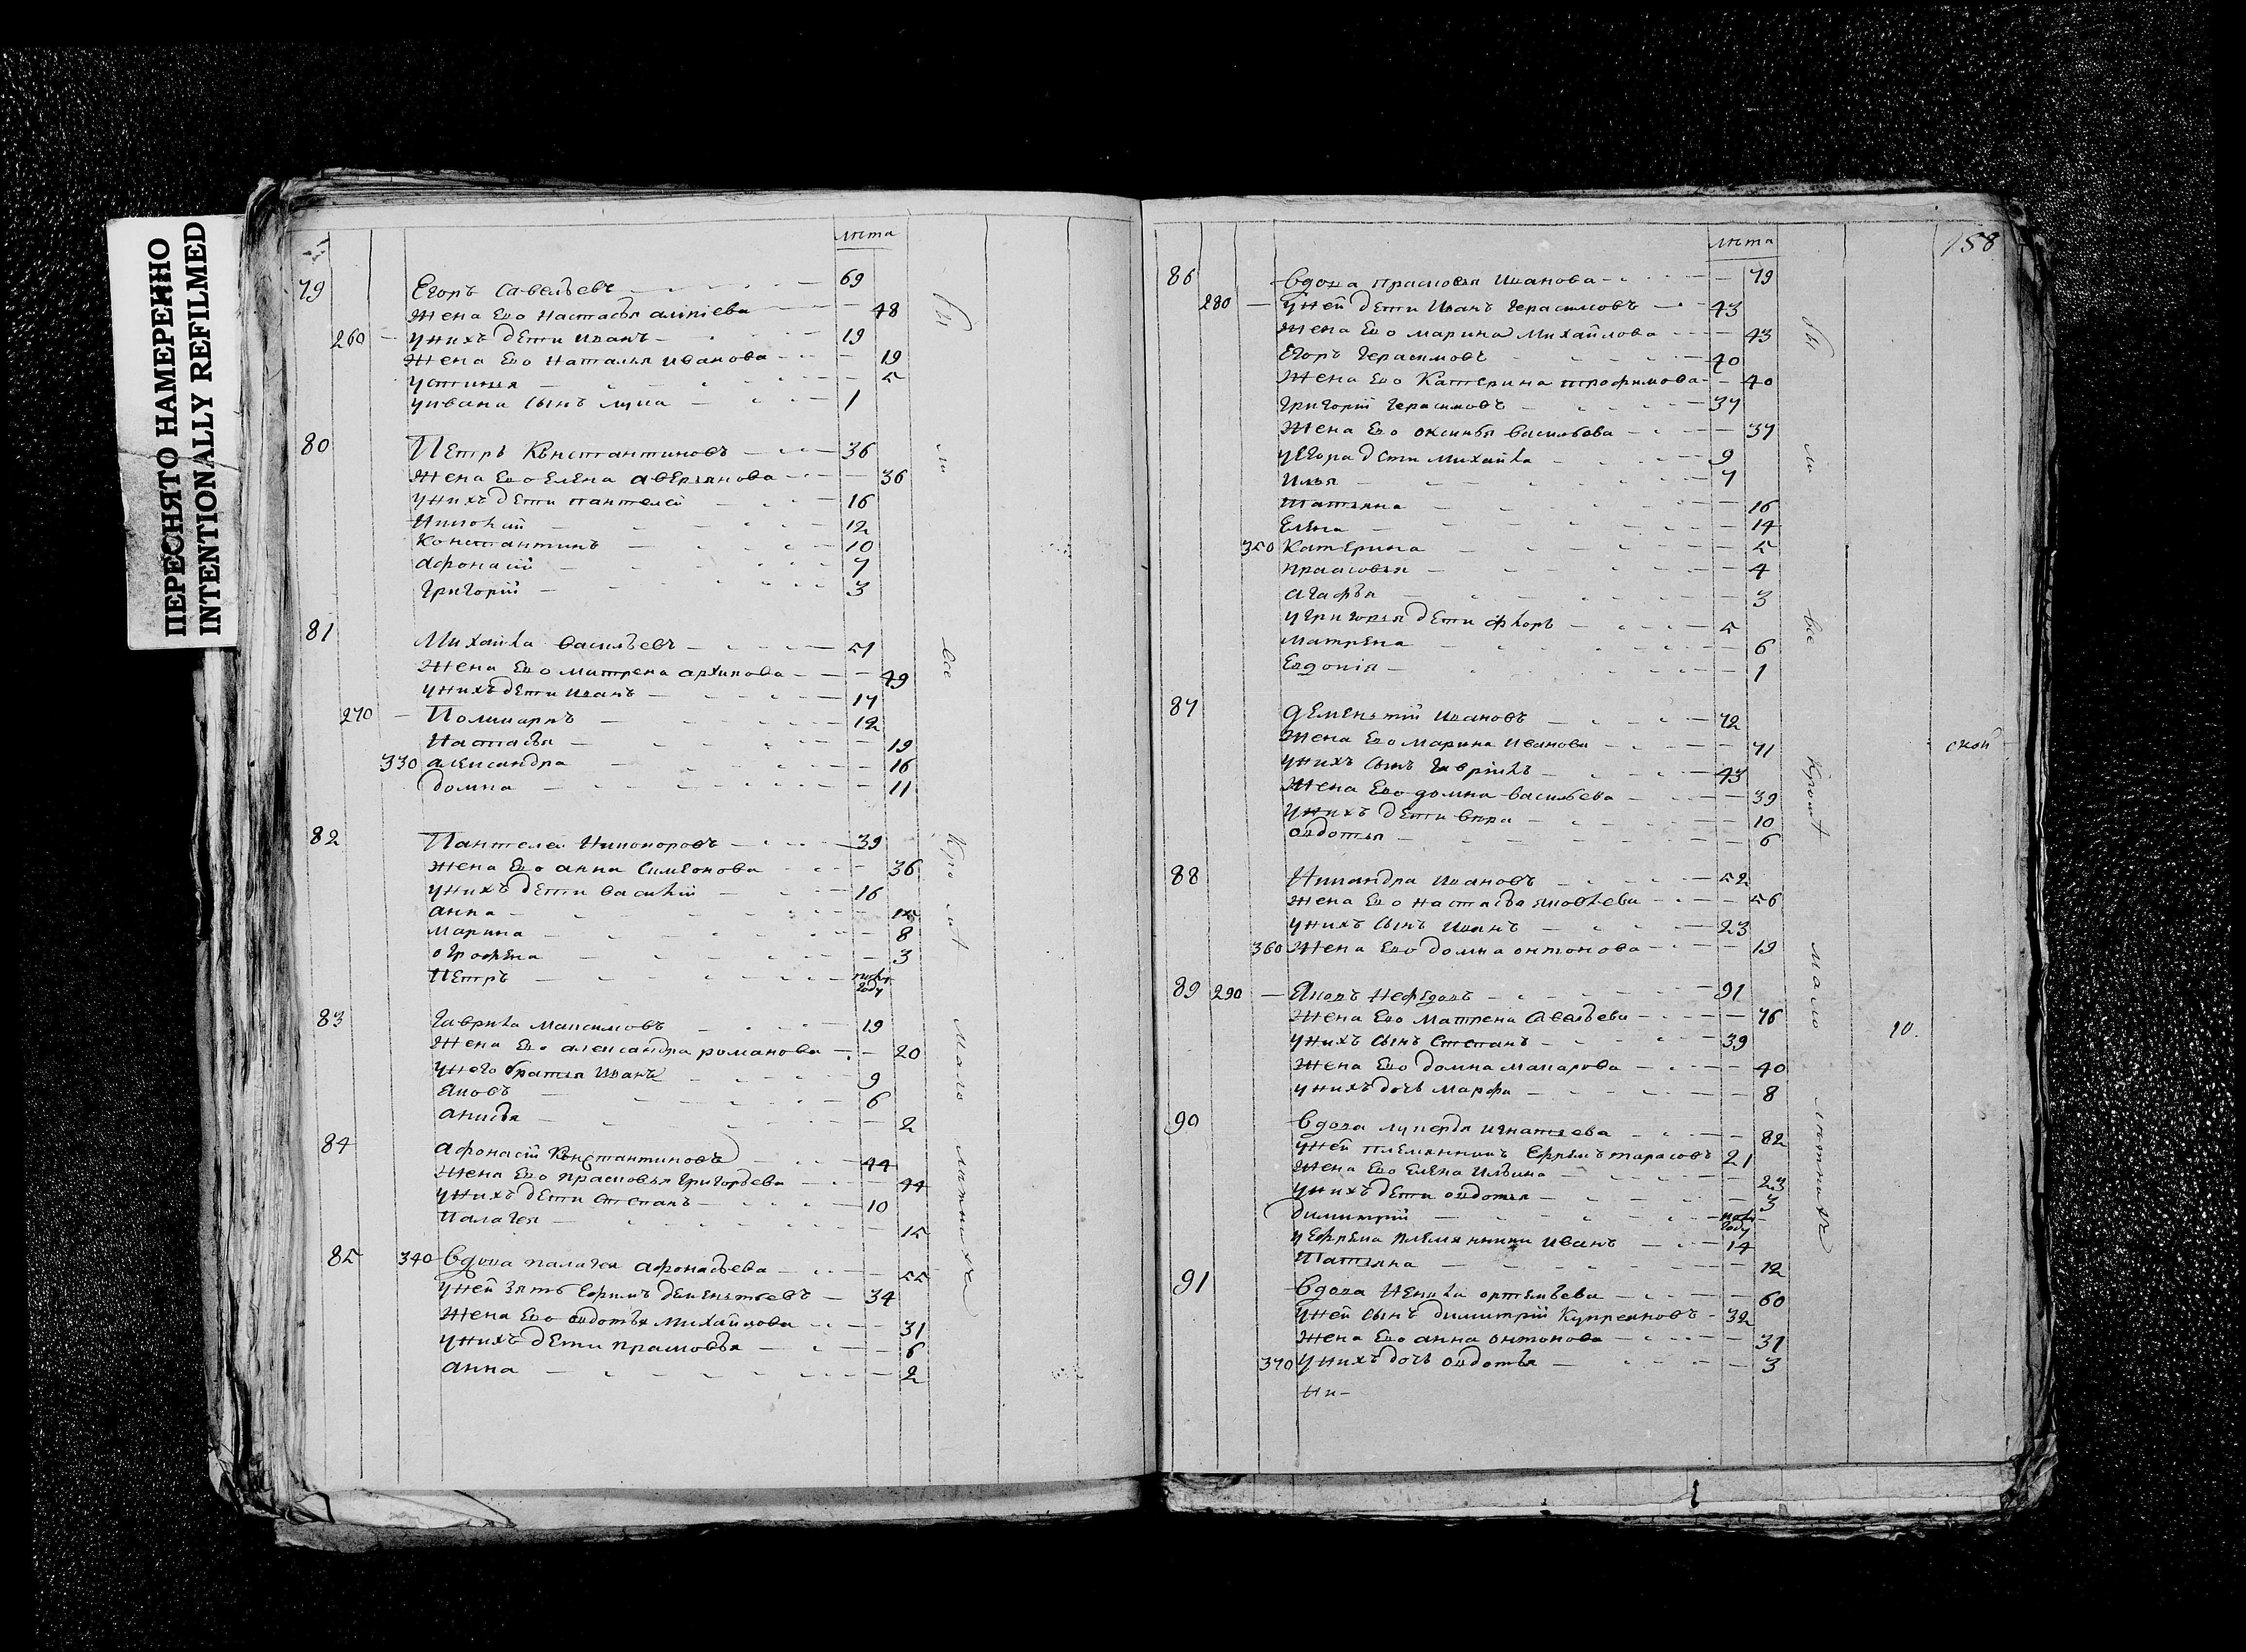 ПЕРЕСНЯТО НАМЕРЕННО
INTENTIONALLY REFILMED
лета
79 Егоръ Савельевъ 69
Жена Ево Настасья 48
260 У нихъ дети Иванъ 19
Жена Ево Наталья Иванова 19
Устинья 5
У Ивана сынъ Лука 1
80 Петръ Константиновъ 36
Жена Ево Елена Аверьянова 36
У нихъ дети Пантелей 16
12
Константинъ 10
Афонасий 7
Григорий 3
81 Михайла Васильевъ 51
Жена Ево Матрена Архипова 49
У нихъ дети Иванъ 17
270 Поликарпъ 12
Настасья 19
330 Александра 16
Домна 11
82 Пантелей Никоноровъ 39
Жена Ево Анна Симеонова 36
У нихъ дети Василий 16
Анна 15
Марина 8
Огрофена 3
Петръ полу году
83 Гаврила Максимовъ 19
Жена Ево Александра Романова 20
У него братья Иванъ 9
Яковъ 6
Анисья 2
84 Афонасий Константиновъ 44
Жена Ево Прасковья Григорьева 44
У нихъ дети Степанъ 10
Палагея 15
85 340 Вдова Палагея Афонасьева 55
У ней зять Ефимъ Дементьевъ 34
Жена Ево Овдотья Михайлова 31
У нихъ дети Прасковья 6
Анна 2
Бы ли все Кро мѣ мало летнихъ
лета
158
86 Вдова Прасковья Иванова 79
280 У ней дети Иванъ Герасимовъ 43
Жена Ево Марина Михайлова 43
Егоръ Герасимовъ 40
Жена Ево Катерина Трофимова 40
Григорий Герасимовъ 37
Жена Ево Оксинья Васильева 37
У Егора дети Михайла 9
Илья 7
Татьяна 16
Елена 14
350 Катерина 5
Прасковья 4
Агафья 3
У Григорья дети Флоръ 5
Матрена 6
Евдокия 1
87 Дементий Ивановъ 72
Жена Ево Марина Иванова 71
У нихъ сынъ Гаврилъ 43
Жена Ево Домна Васильева 39
У нихъ дети Вера 10
Овдотья 6
88 Никандра Ивановъ 52
Жена Ево Настасья Яковлева 56
У нихъ сынъ Иванъ 23
360 Жена Ево Домна Онтонова 19
89 290 Яковъ Нефедовъ 91
Жена Ево Матрена Савельева 76
У нихъ сынъ Степанъ 39
Жена Ево Домна Макарова 40
У нихъ дочь Марфа 8
90 Вдова Лукерья Игнатьева 82
У ней племянникъ Ефремъ Тарасовъ 21
Жена Ево Елена Ильина 23
У нихъ дети Овдотья 3
Димитрий полу году
У Ефрема племянники Иванъ 14
Татьяна 12
91 Вдова Ненила Ортемьева 60
У ней сынъ Димитрий Куприяновъ 32
Жена Ево Анна Онтонова 31
370 У нихъ дочь Овдотья 3
Ни-
Бы ли все Кромѣ мало летнихъ
10.